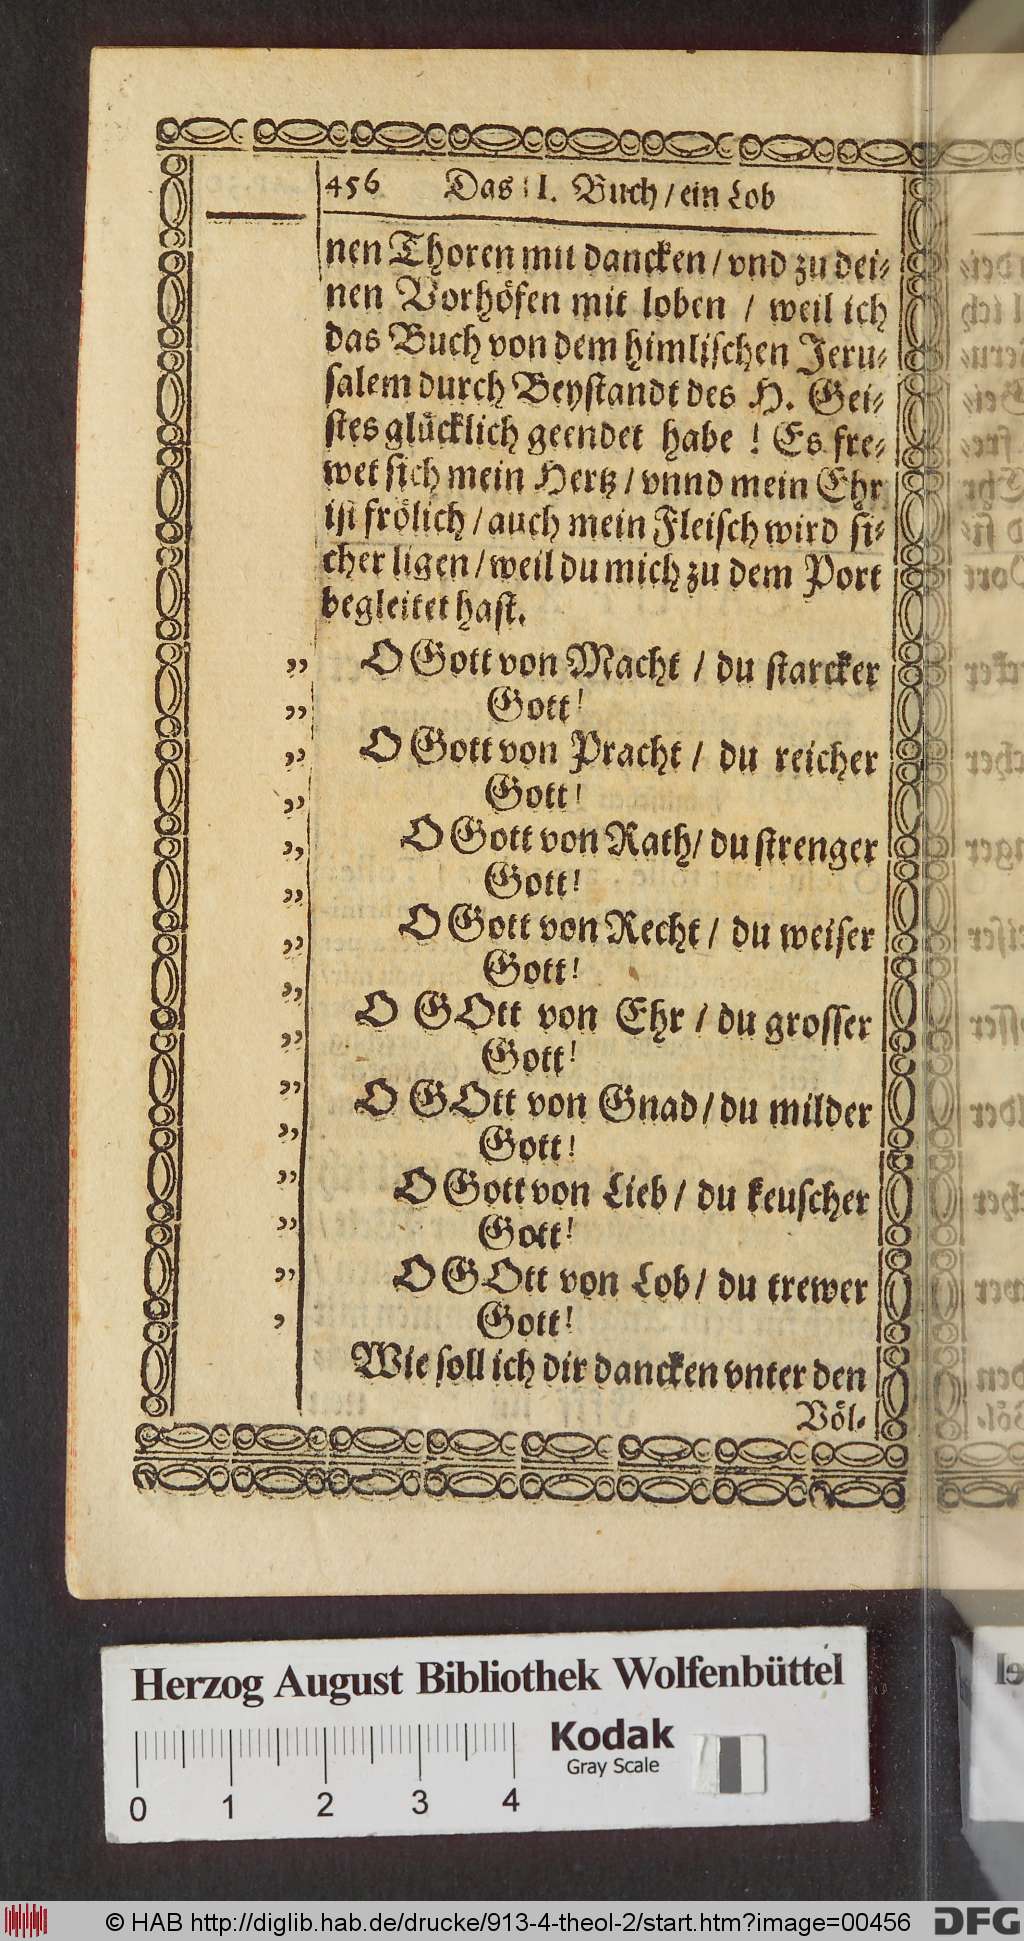 456 Das I. Buch / ein Lob
nen Thoren mit dancken / vnd zu dei-
nen Vorhöfen mit loben / weil ich
das Buch von dem himlischen Jeru-
salem durch Beystandt des H. Gei-
stes glücklich geendet habe ! Es fre-
wet sich mein Hertz / vnnd mein Ehr
ist frölich / auch mein Fleisch wird si-
cher ligen / weil du mich zu dem Port
begleitet hast.
„ O Gott von Macht / du starcker
„ Gott!
„ O Gott von Pracht / du reicher
„ Gott!
„ O Gott von Rath / du strenger
„ Gott!
„ O Gott von Recht / du weiser
„ Gott!
„ O GOtt von Ehr / du grosser
„ Gott!
„ O GOtt von Gnad / du milder
„ Gott!
„ O Gott von Lieb / du keuscher
„ Gott!
„ O GOtt von Lob / du trewer
, Gott!
Wie soll ich dir dancken vnter den
Völ-
Herzog August Bibliothek Wolfenbüttel
0 1 2 3 4
Kodak
Gray Scale
© HAB http://diglib.hab.de/drucke/913-4-theol-2/start.htm?image=00456
DFG